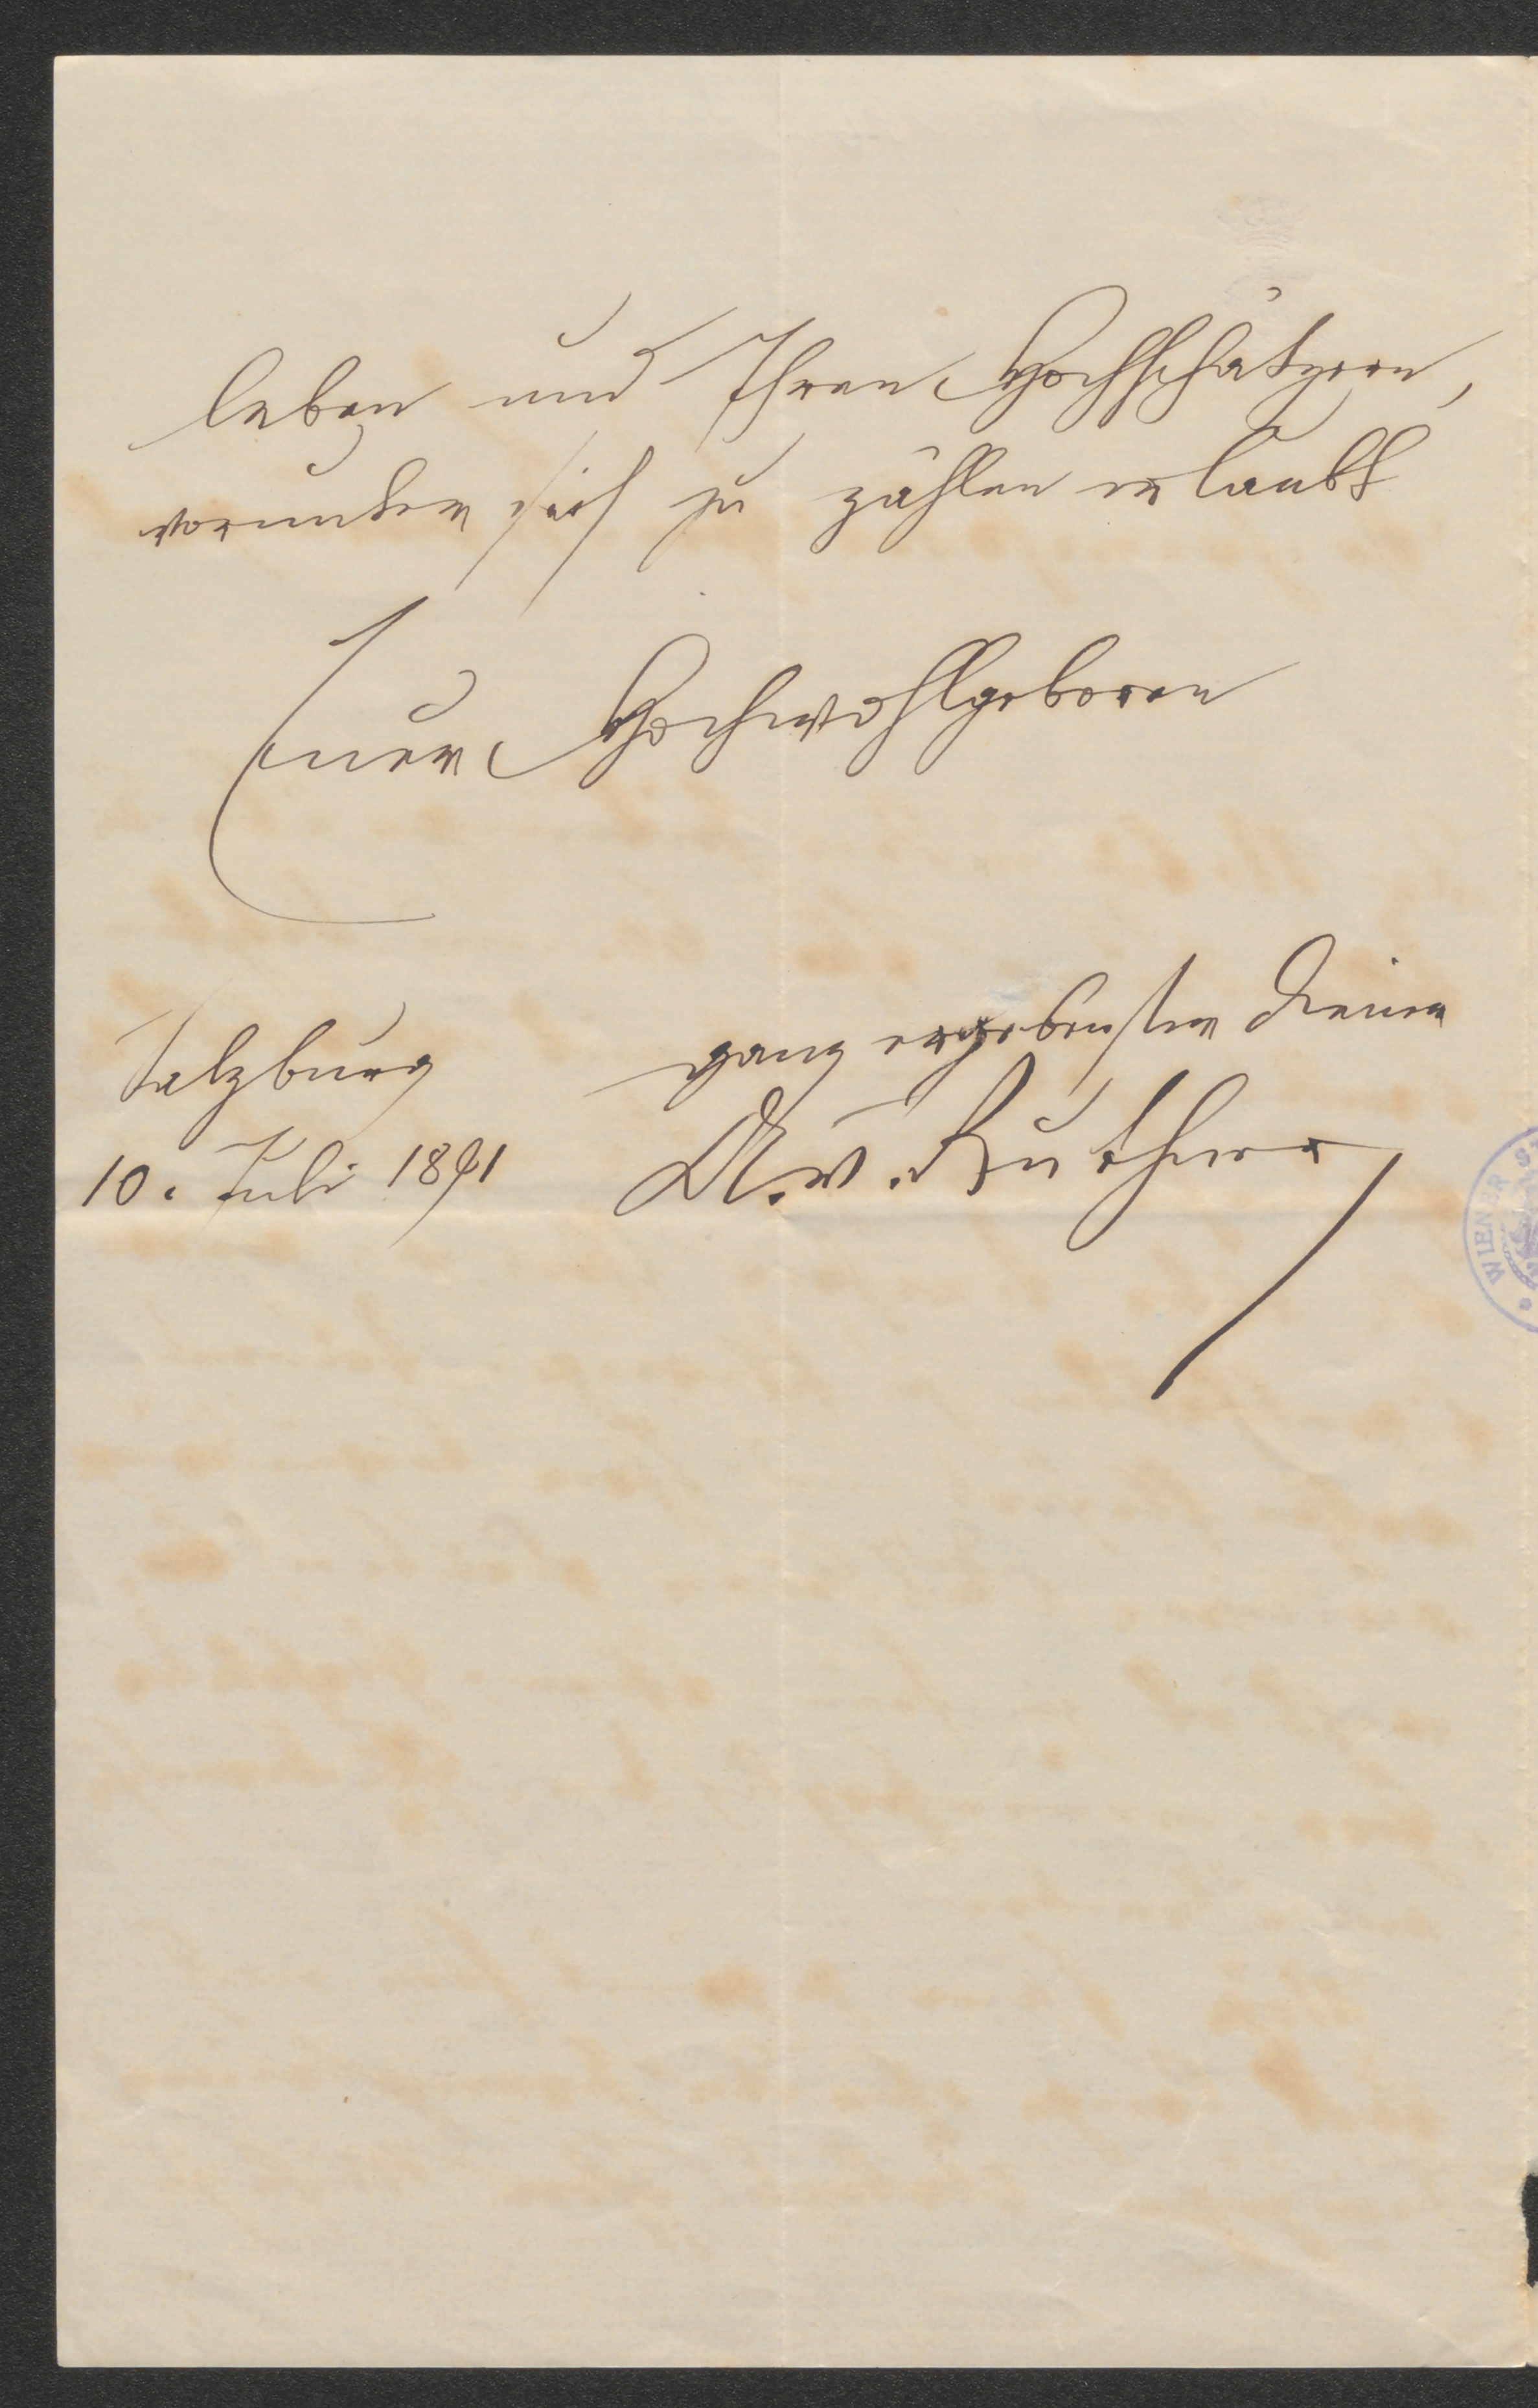 leben und Ihren Hochschätzern,
worunter sich zu zählen erlaubt
Euer Hochwohlgeboren
ganz ergebenster Diener
Salzburg
A. v. Ruthner
10. Juli 1891
WIENER